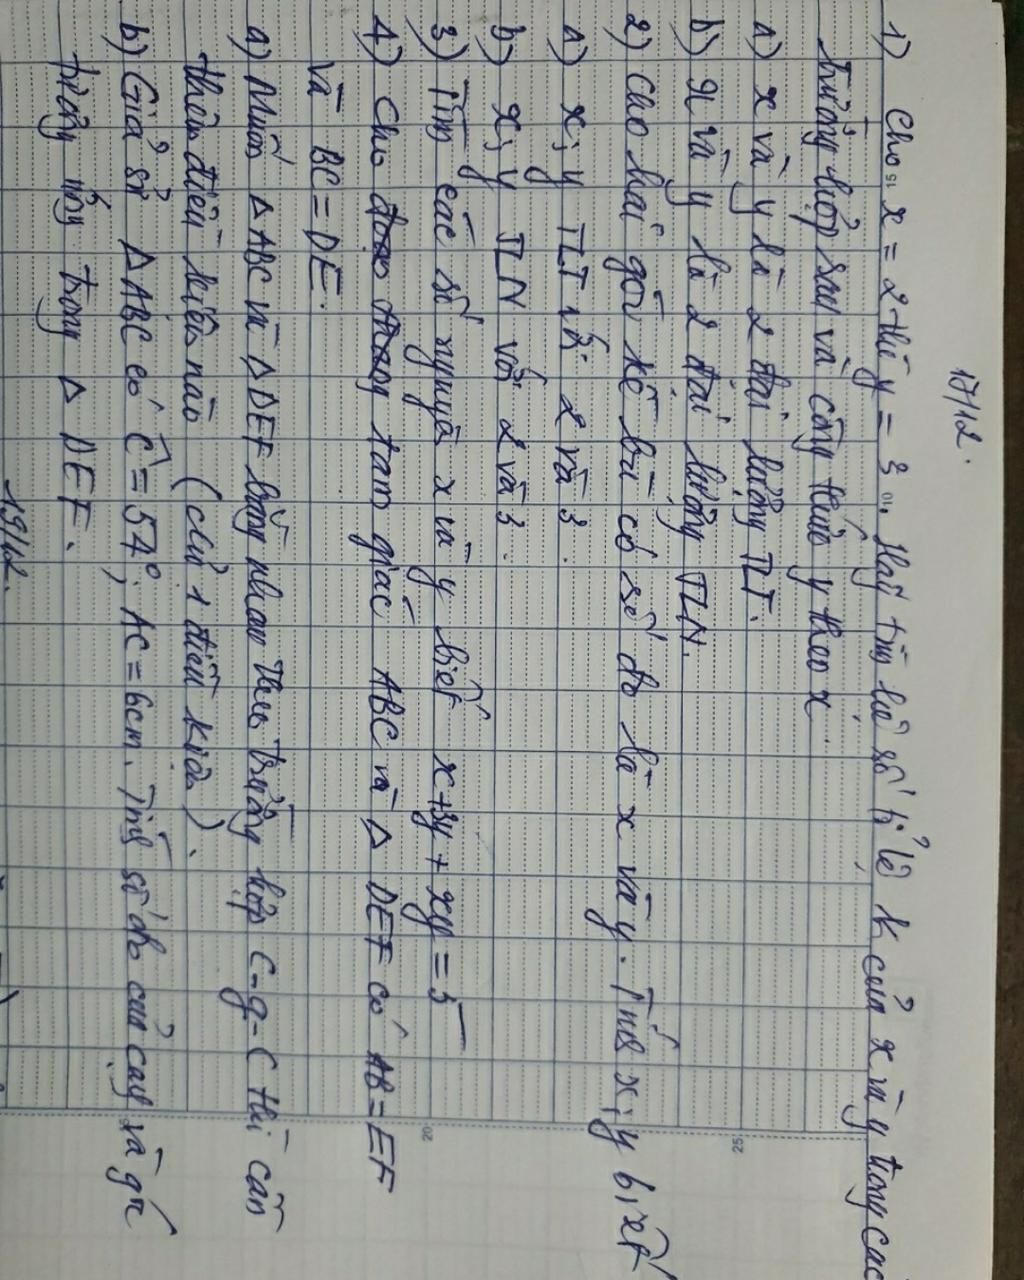 17/12.
1) Cho x = 2 thì y = 3. Hãy tìm hệ số tỉ lệ k của x và y trong các
trường hợp sau và công thức y theo x.
a) x và y là 2 đại lượng TLT.
b) x và y là 2 đại lượng TLN.
2) Cho hai góc kề bù có số đo là x và y. Tính x; y biết
a) x; y TLT với 2 và 3.
b) x; y TLN với 2 và 3.
3) Tìm các số nguyên x và y biết x+3y+xy=5
4) Cho tam giác ABC và Δ DEF có AB=EF
và BC=DE.
a) Muốn ΔABC và ΔDEF bằng nhau theo trường hợp c-g-c thì cần
thêm điều kiện nào (chỉ 1 điều kiện).
b) Giả sử ΔABC có Ĉ=54°; AC=6cm. Tính số đo của cạnh và góc
trong Δ DEF.
19/12.